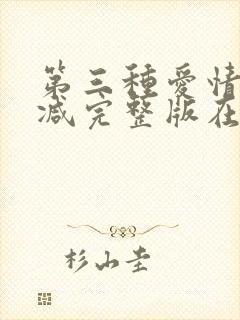 第三種愛情
减完整版在
杉山圭